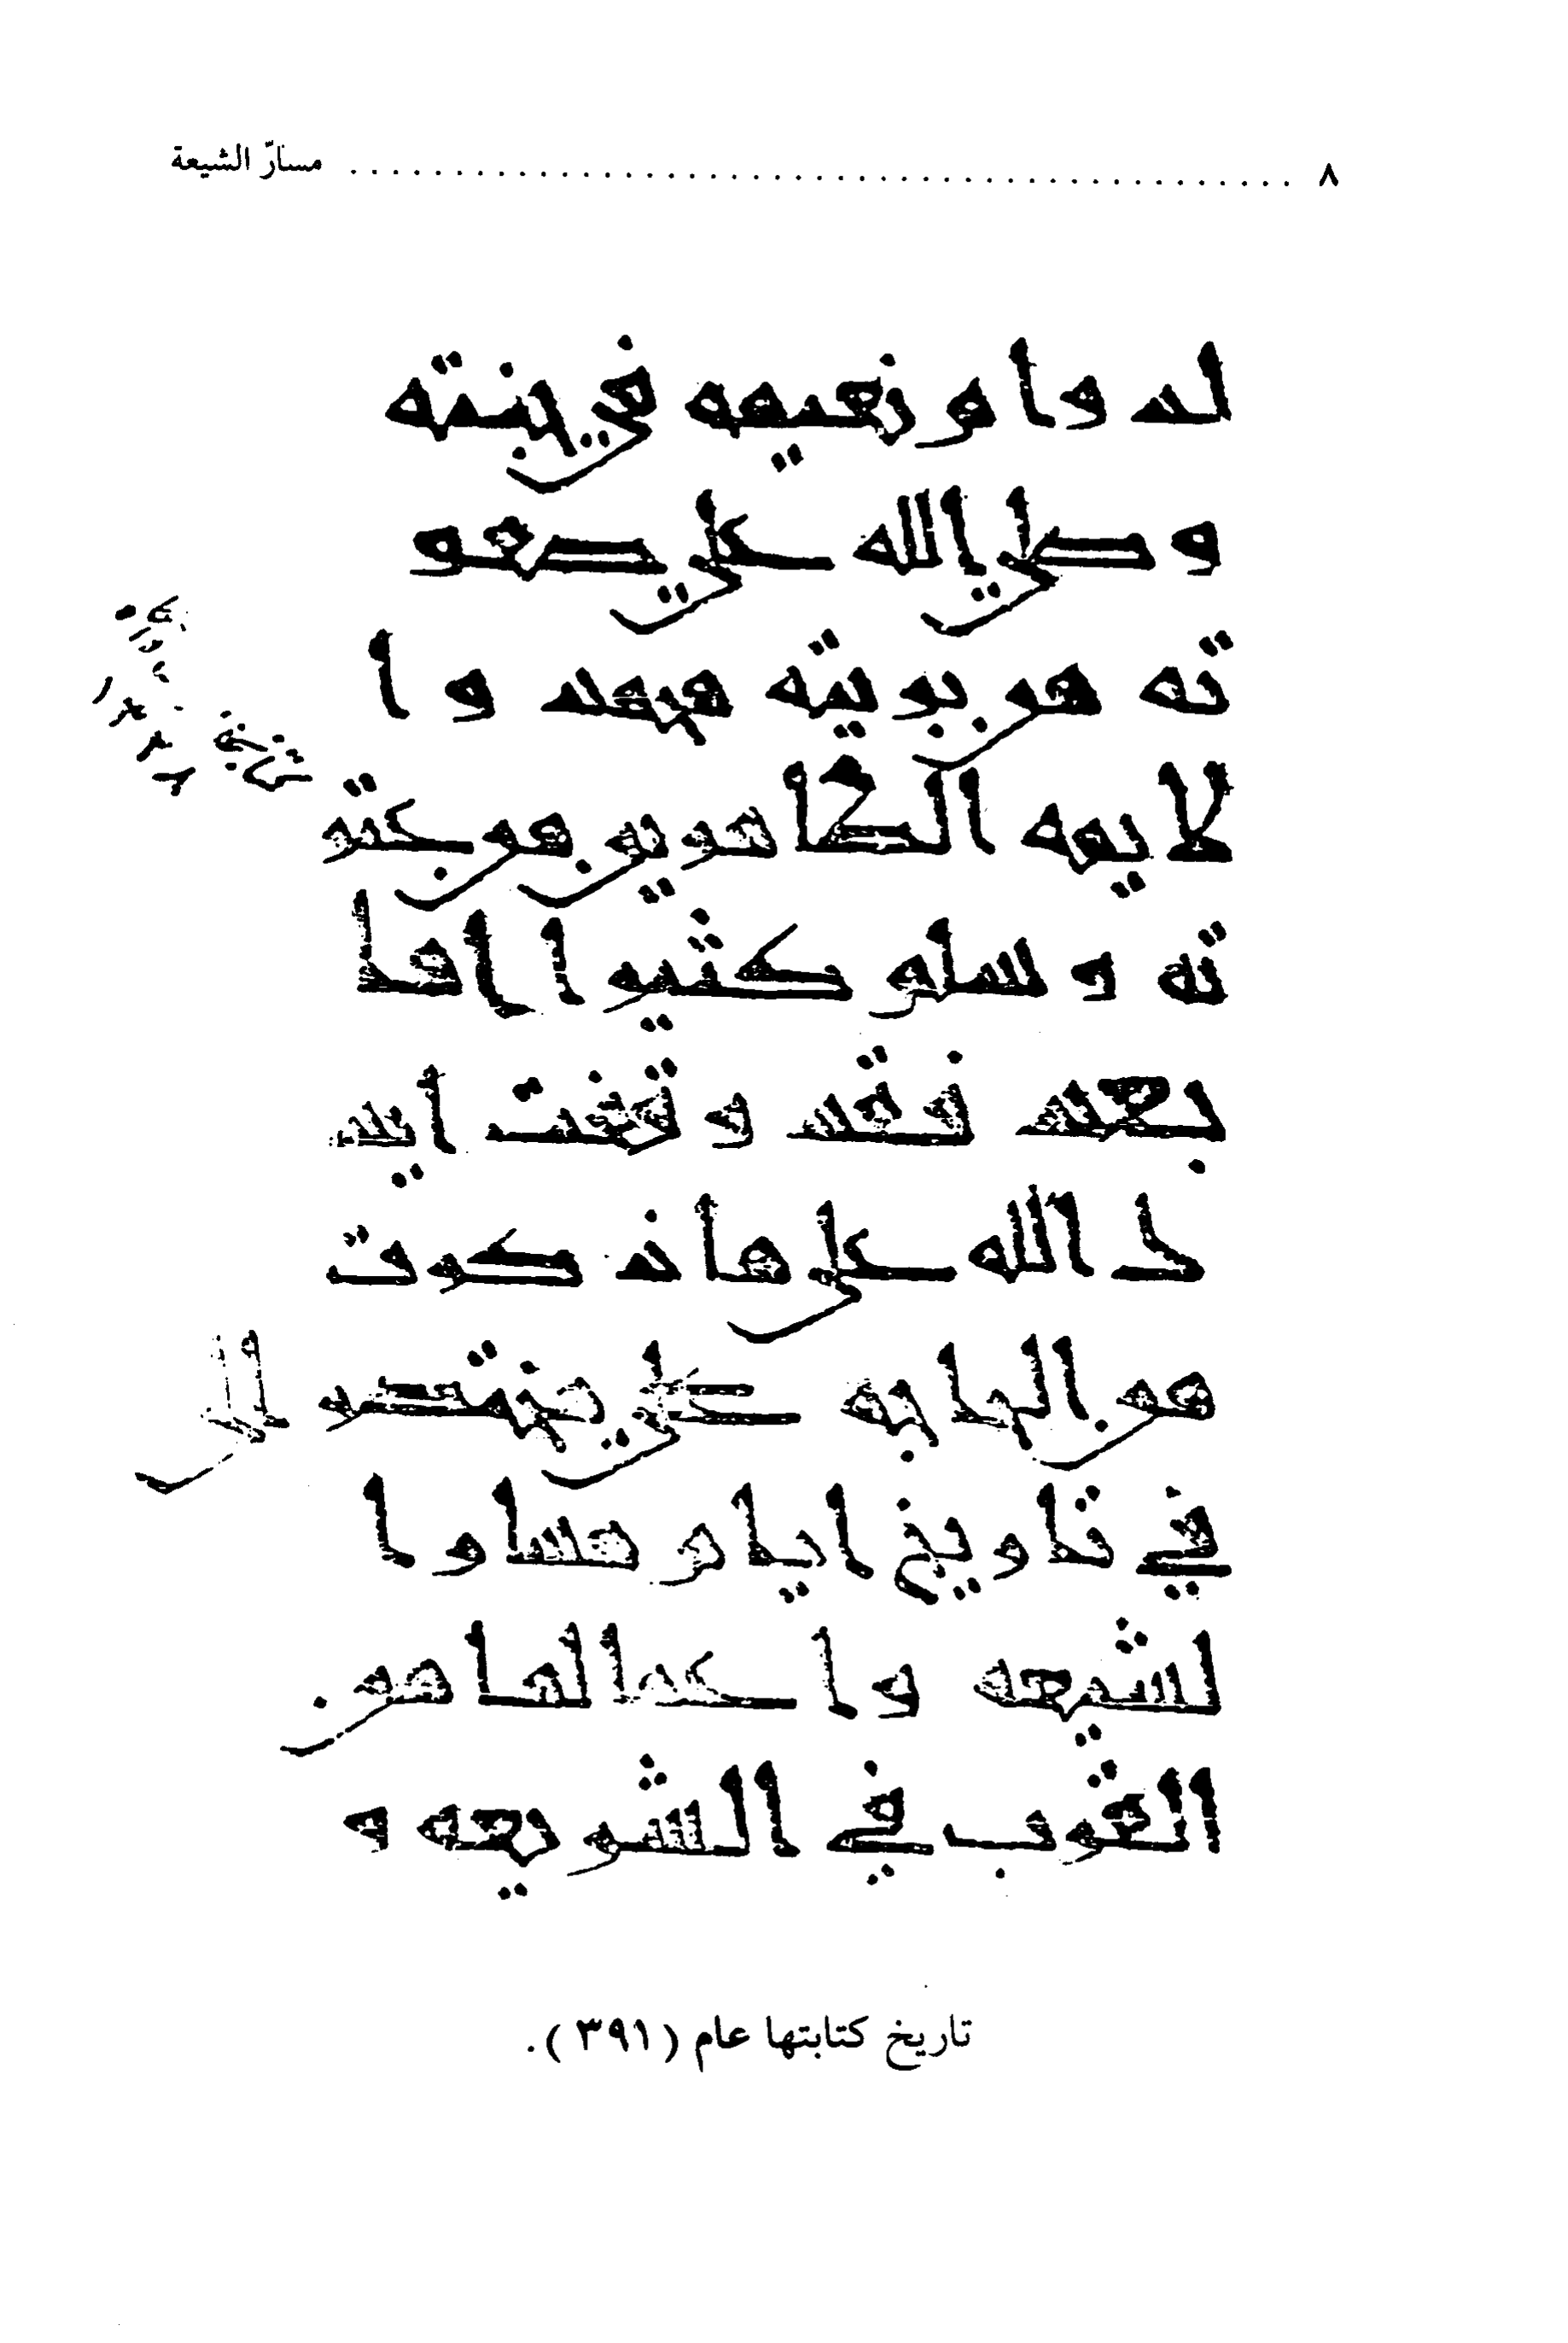 ٨ ........ مسارّ الشيعة
لد وام نعيمه في جنته
وصلى الله على صفو
ته من بريته محمد وا
لايمه الطاهرين من عتر
ته وسلم كثيرا اما
بعد فقد وقفت ايد
ك الله على ما ذكرت
من الحاجه الى مختصر
في تاريخ ايام مسار ا
لشيعه واعمالها من
القرب في الشريعه و
تاريخ كتابتها عام (٣٩١).